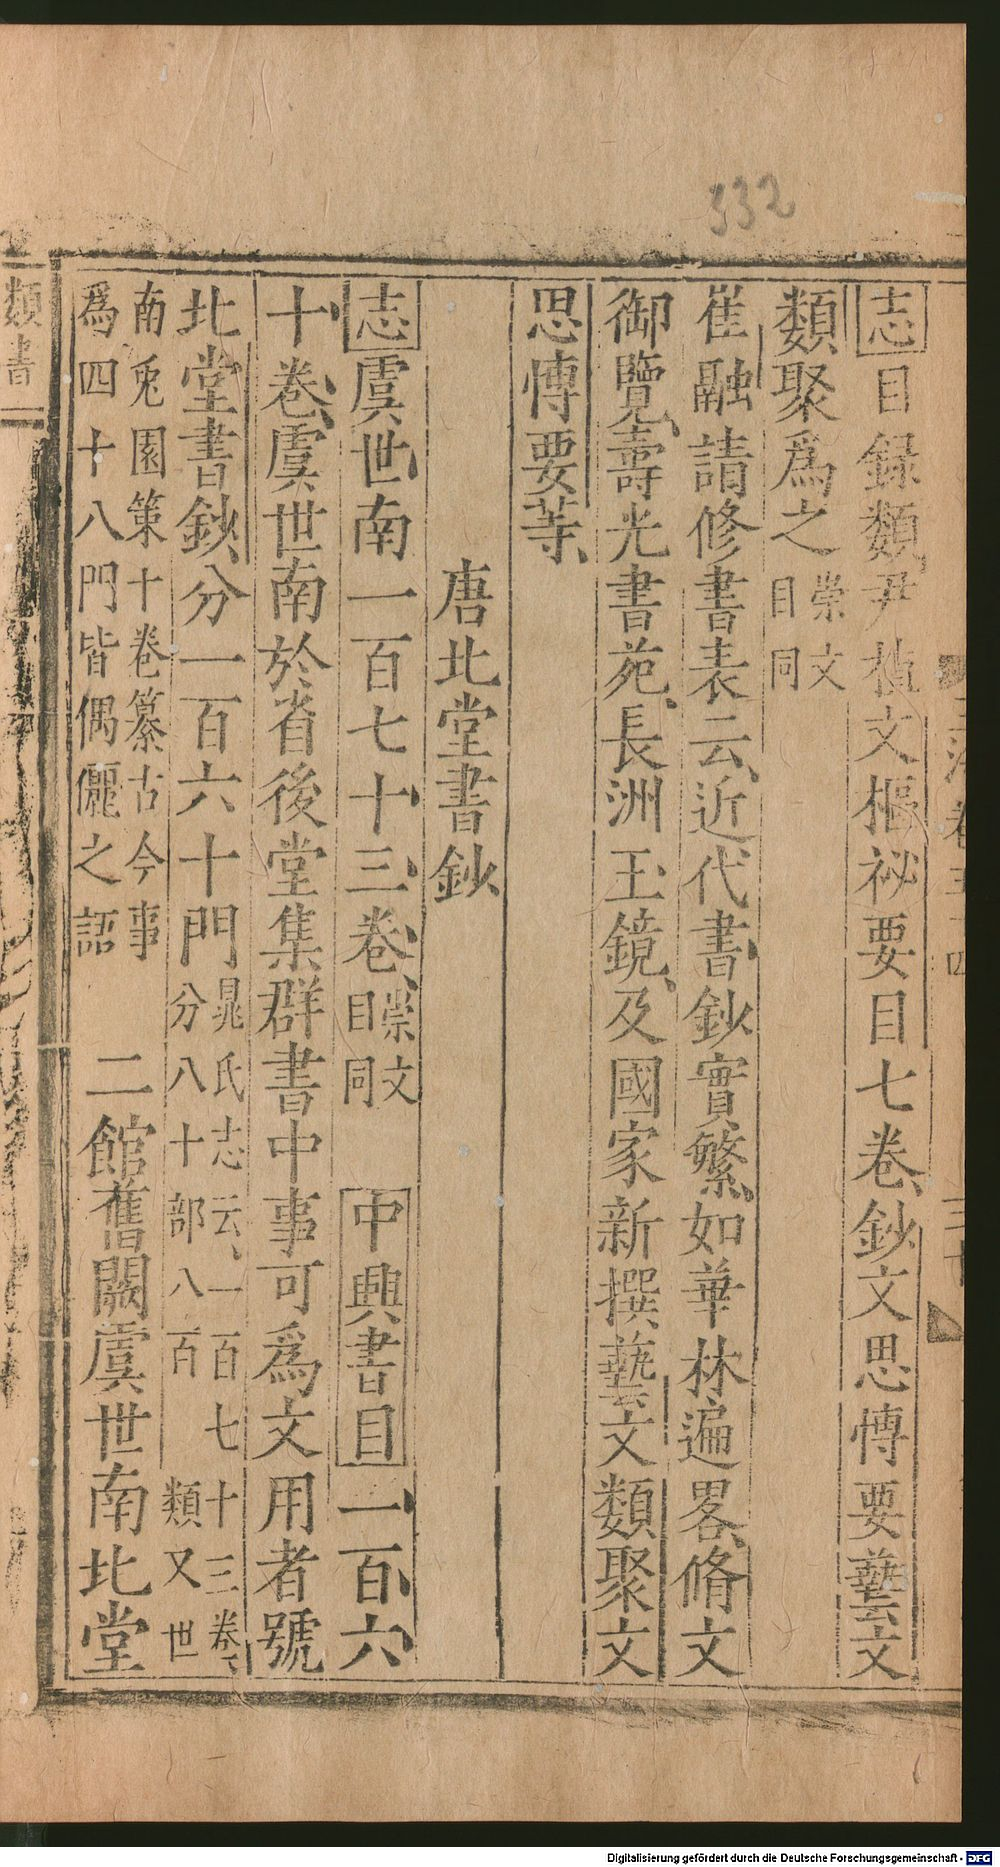 332
志目録類尹植文樞祕要目七卷鈔文思愽要藝文
類聚爲之崇文目同
崔融請修書表云近代書鈔實繁如華林遍畧脩文
御覽壽光書苑長洲玉鏡及國家新撰藝文類聚文
思愽要等
唐北堂書鈔
志虞世南一百七十三卷崇文目同 中興書目一百六
十卷虞世南於省後堂集群書中事可爲文用者號
北堂書鈔分一百六十門晁氏志云一百七十三卷分八十部八百類又世
南兎園策十卷纂古今事爲四十八門皆偶儷之語 二館舊闕虞世南北堂
類書
Digitalisierung gefördert durch die Deutsche Forschungsgemeinschaft - DFG